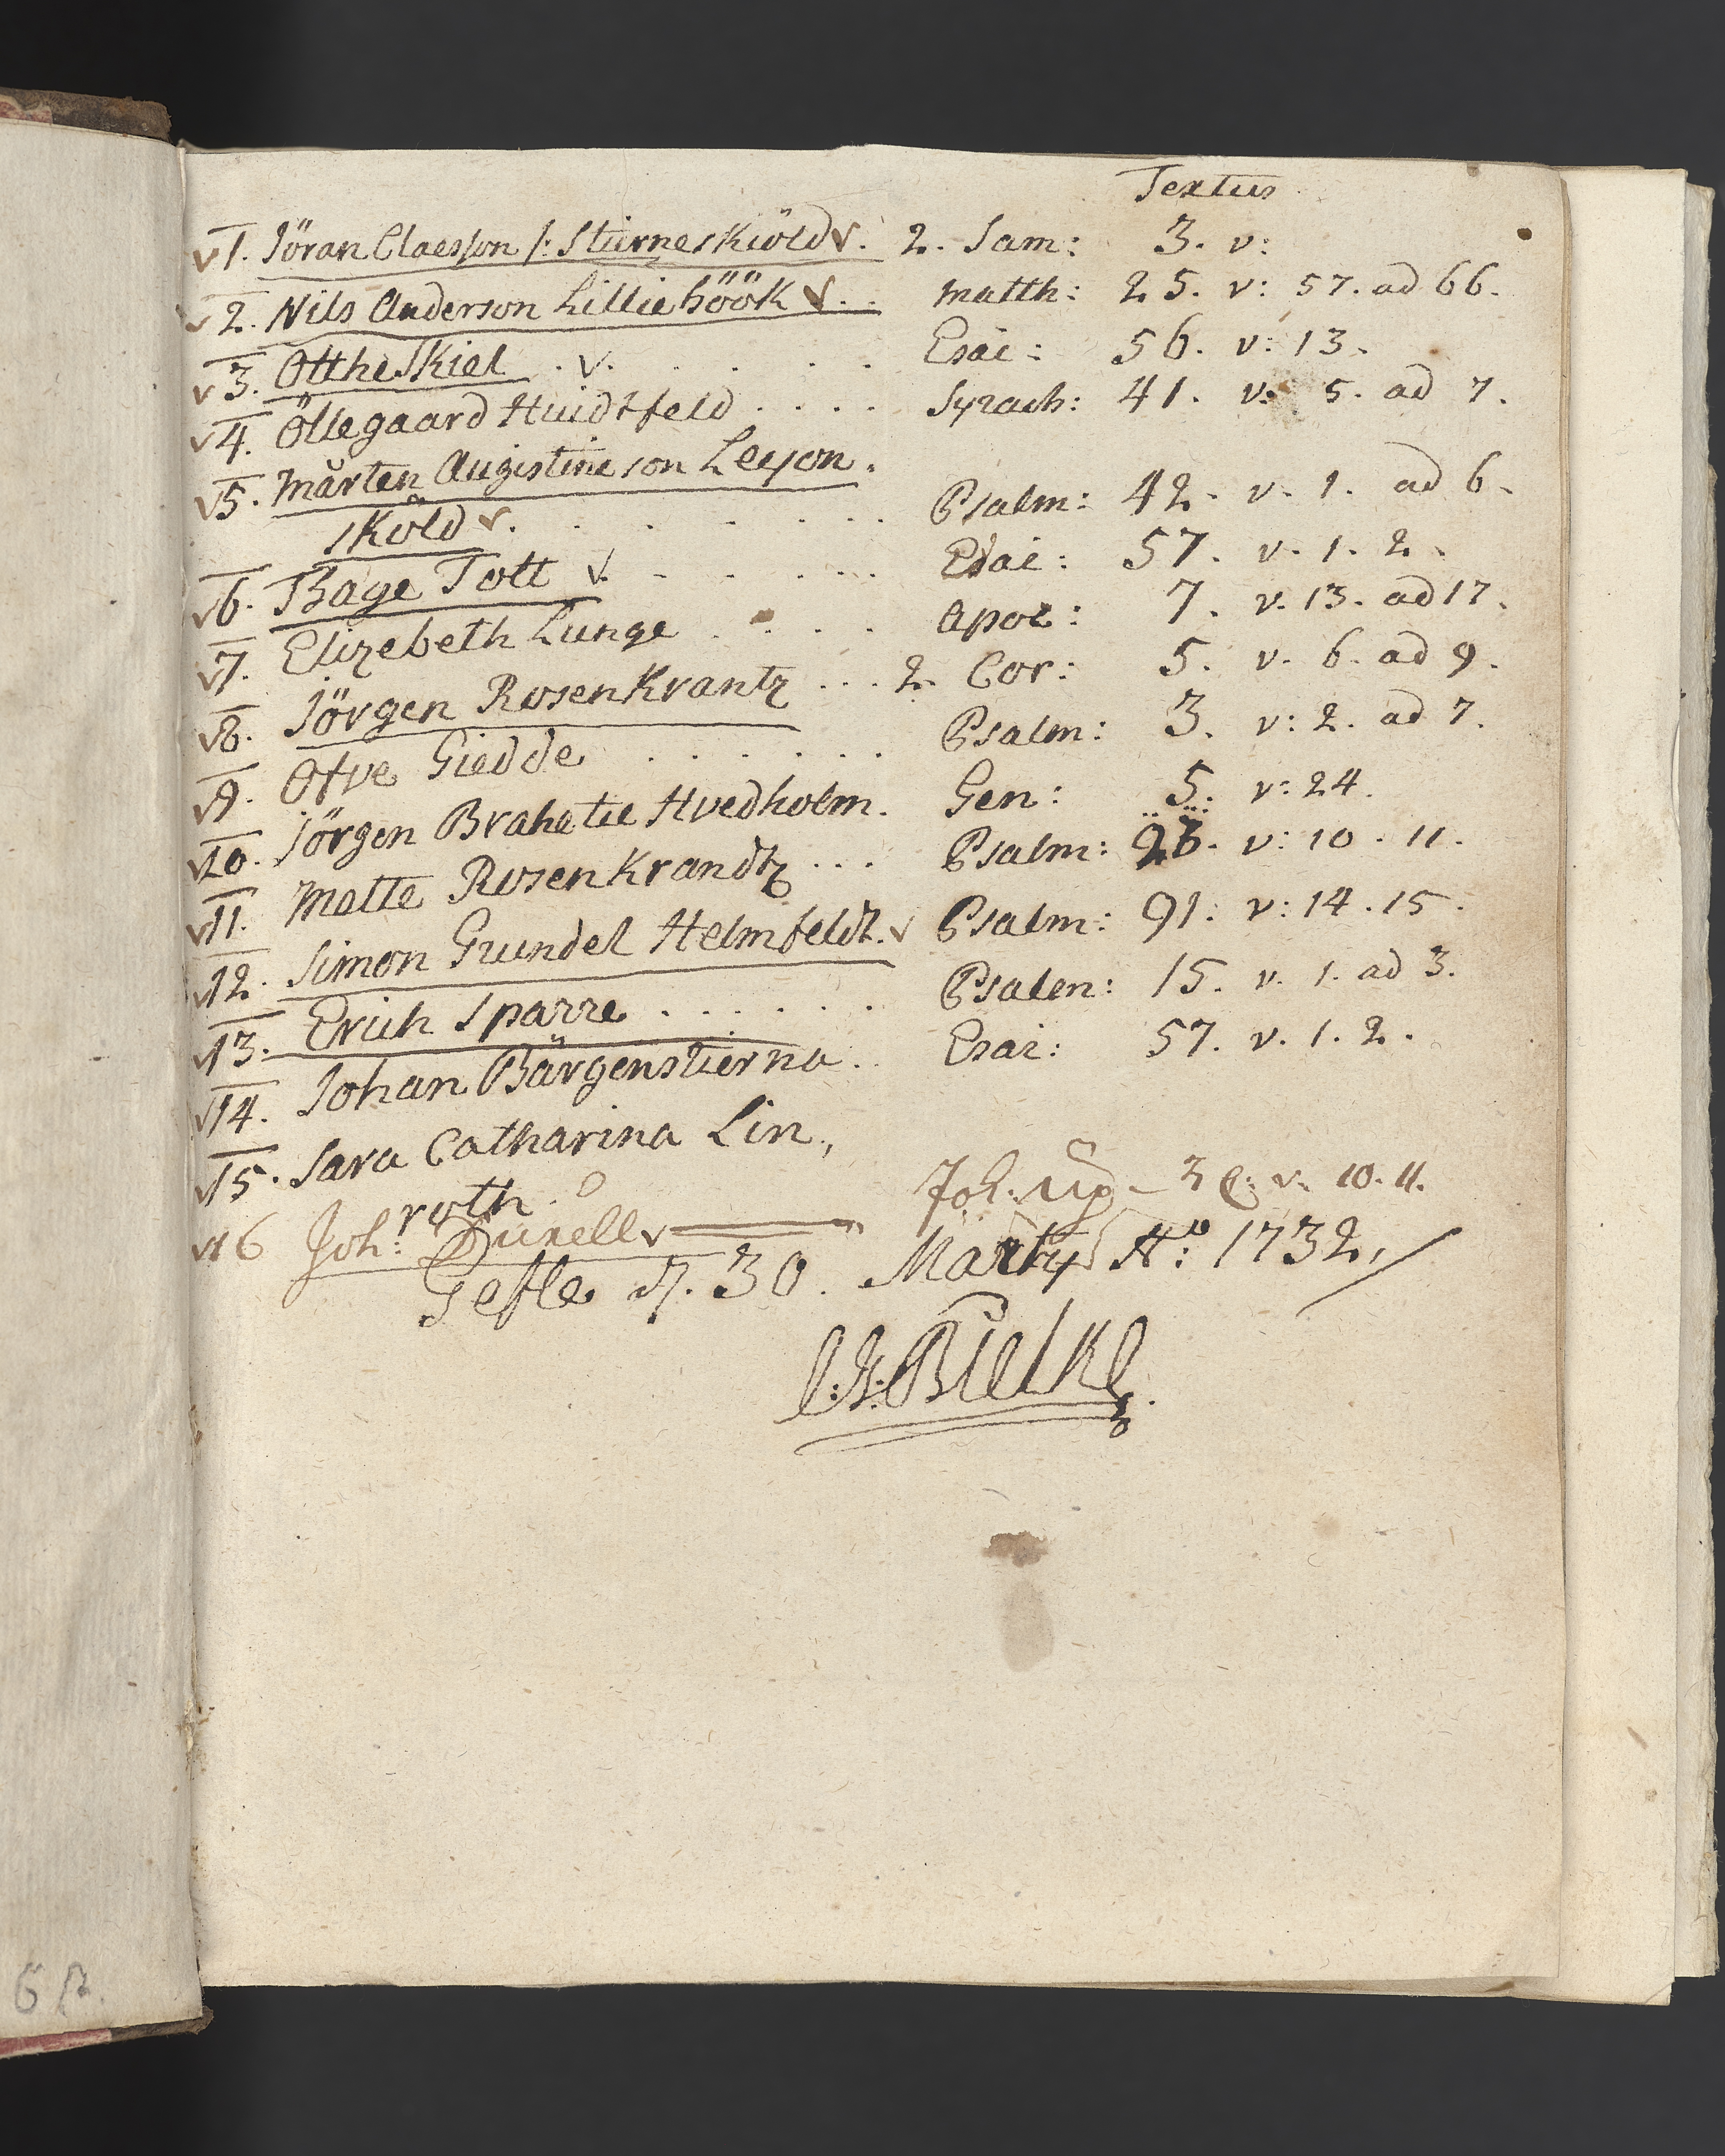 Textus
1. Jöran Claesson /: Stierneskiöld. 2. Sam: 3. v:
2. Nils Anderson Lilliehöök .. Matth: 25. v: 57. ad 66.
3. Otthe Skiel . . . . . . Esai: 56. v: 13.
4. Öllegaard Huidtfeld . . . . Syrach: 41. v: 5. ad 7.
5. Mårten Augistine son Leyon.
sköld . . . . . . . . Psalm: 42. v. 1. ad 6.
6. Thage Tott . . . . . . Esai: 57. v. 1. 2.
7. Elizebeth Lunge . . . . Apoc: 7. v. 13. ad 17.
8. Jörgen Rosenkrantz ... 2. Cor: 5. v. 6. ad 9.
9. Otve Giedde . . . . . . Psalm: 3. v: 2. ad 7.
10. Jörgen Brahe til Hvedholm. Gen: 5. v: 24.
11. Mette Rosenkrandtz ... Psalm: v: 10. 11.
12. Simon Grundel Helmfeldt. Psalm: 91. v: 14. 15.
13. Erich Sparre . . . . . . Psalm: 15. v. 1. ad 3.
14. Johan Bärgenstierna . . Esai: 57. v. 1. 2.
15. Sara Catharina Lin,,
roth.
16 Joh: Durell Joh. Up 3 C: v. 10. 11.
Gefle d. 30. Marty Ao: 1732,
C:G:Bielke